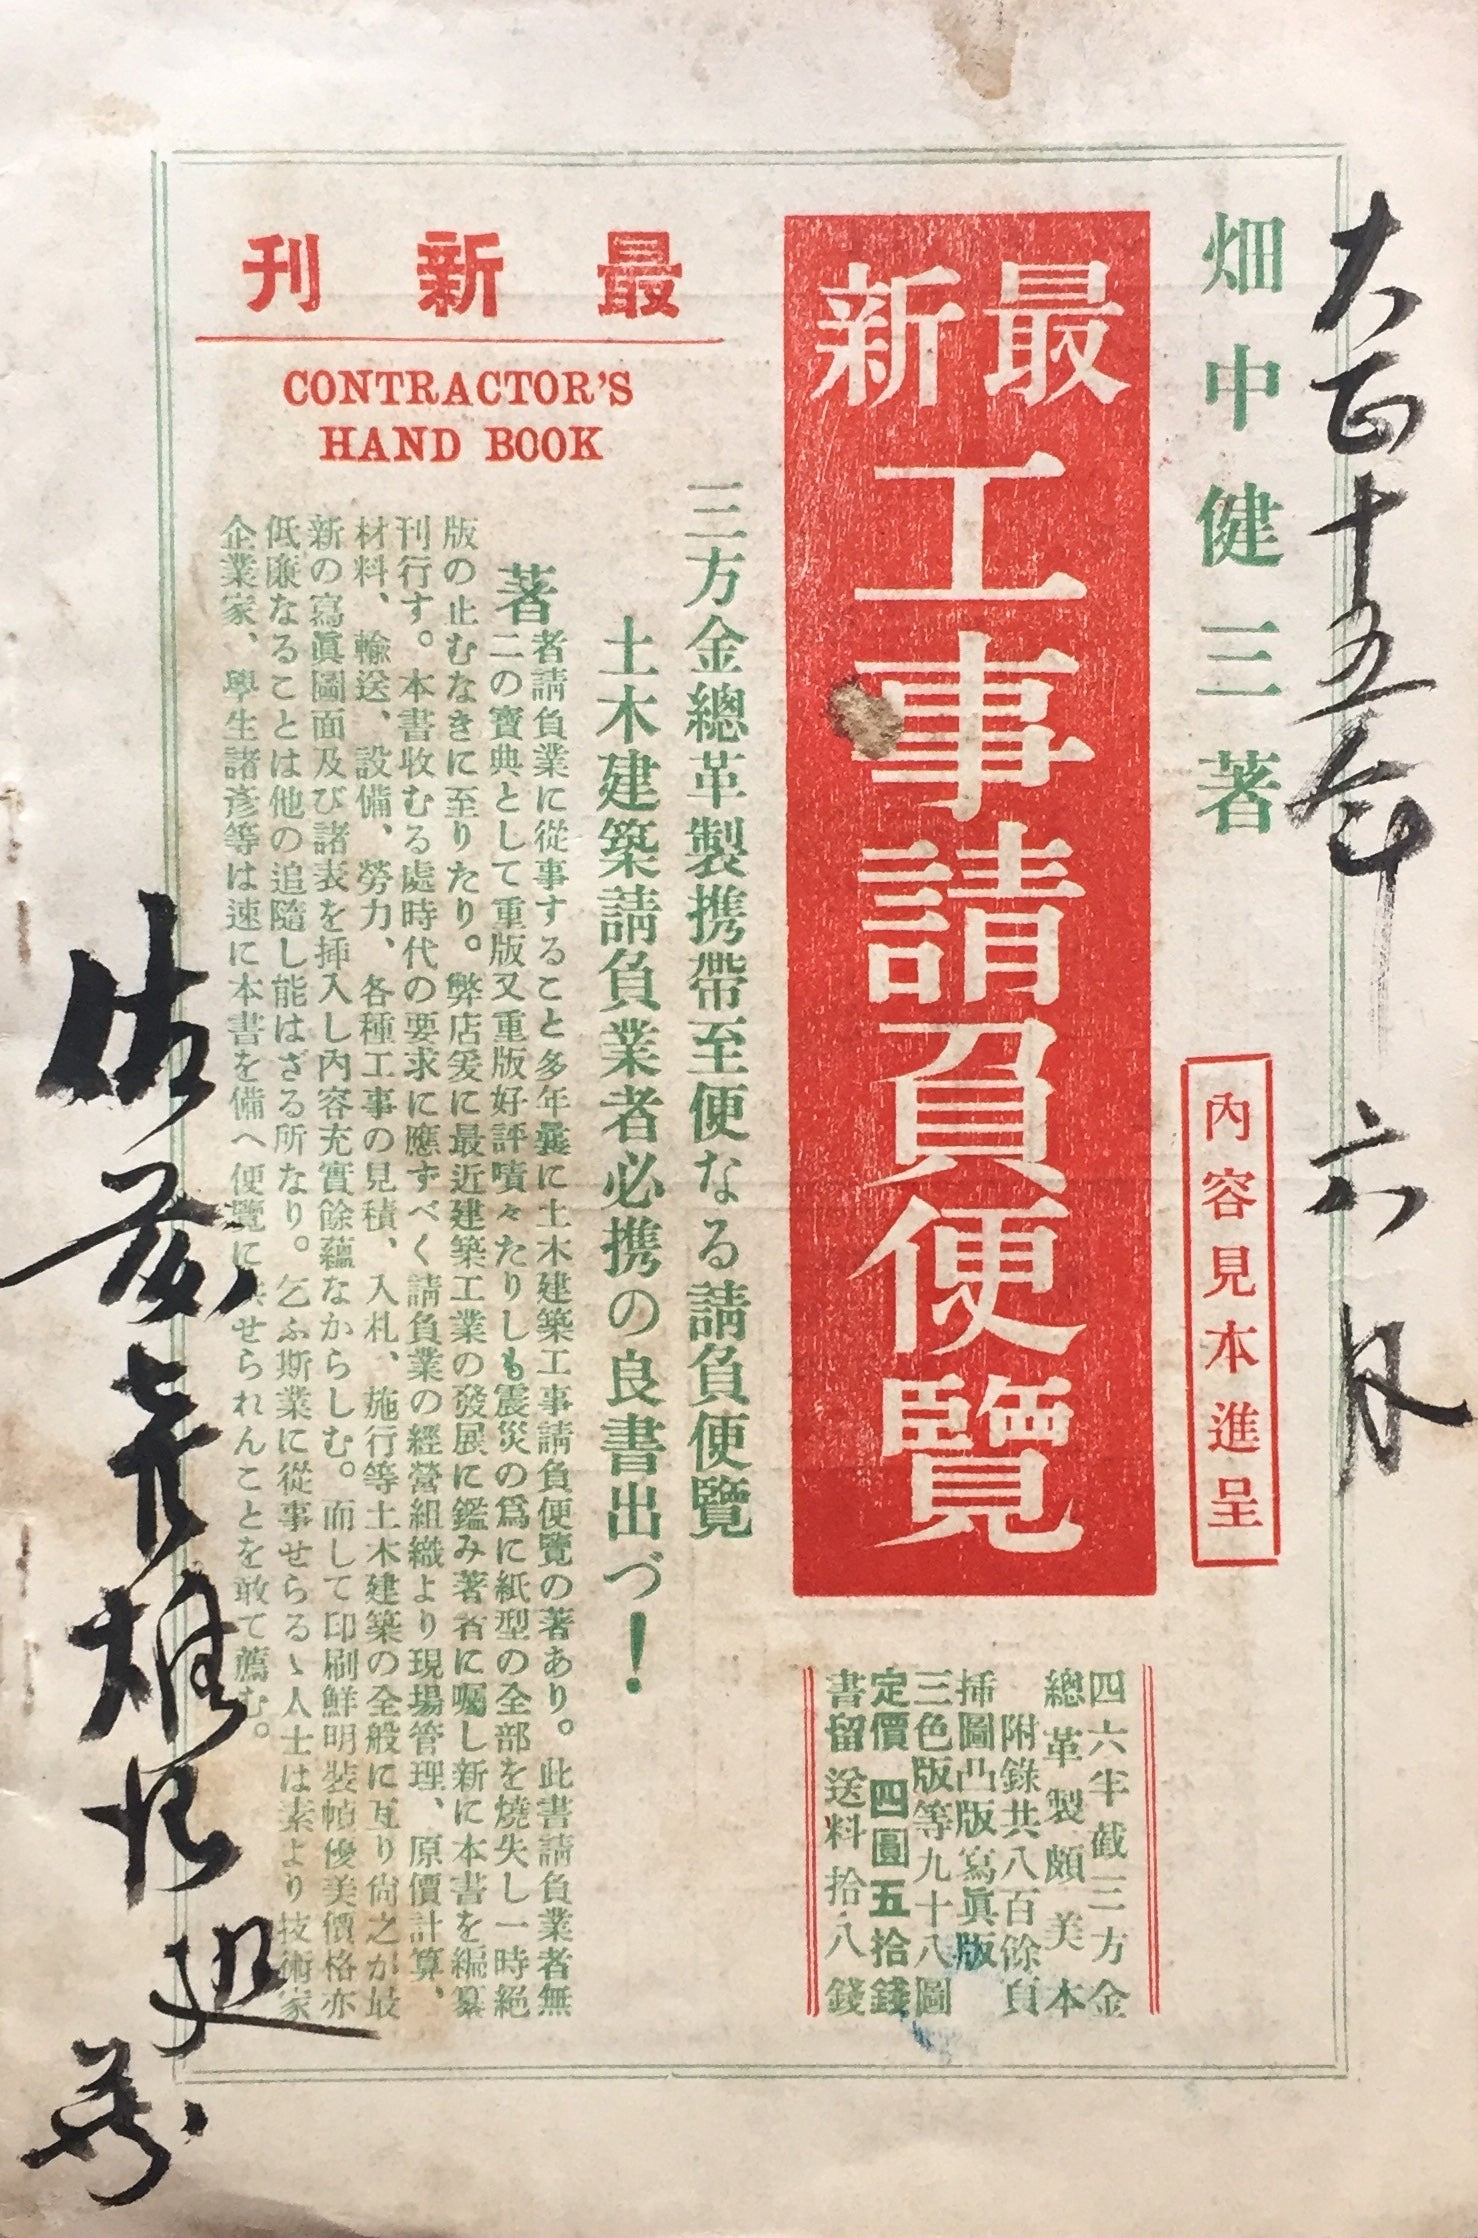 大正十五年 六月
畑中健三著
內容見本進呈
最新
工事請負便覽
四六半截三方金
總革製頗美本
附錄共八百餘頁
揷圖凸版寫眞版
三色版等九十八圖
定價 四圓五拾錢
書留送料拾八錢
最新刊
CONTRACTOR'S
HAND BOOK
三方金總革製携帶至便なる請負便覽
土木建築請負業者必携の良書出づ！
著者請負業に從事すること多年曩に土木建築工事請負便覽の著あり。此書請負業者無
二の寶典として重版又重版好評嘖々たりしも震災の爲に紙型の全部を燒失し一時絕
版の止むなきに至りたり。弊店爰に最近建築工業の發展に鑑み著者に囑し新に本書を編纂
刊行す。本書收むる處時代の要求に應ずべく請負業の經營組織より現場管理、原價計算、
材料、輸送、設備、勞力、各種工事の見積、入札、施行等土木建築の全般に亙り尙之が最
新の寫眞圖面及び諸表を揷入し內容充實餘蘊なからしむ。而して印刷鮮明裝幀優美價格亦
低廉なることは他の追隨し能はざる所なり。乞ふ斯業に從事せらるゝ人士は素より技術家
企業家、學生諸彥等は速に本書を備へ便覽に供せられんことを敢て薦む。